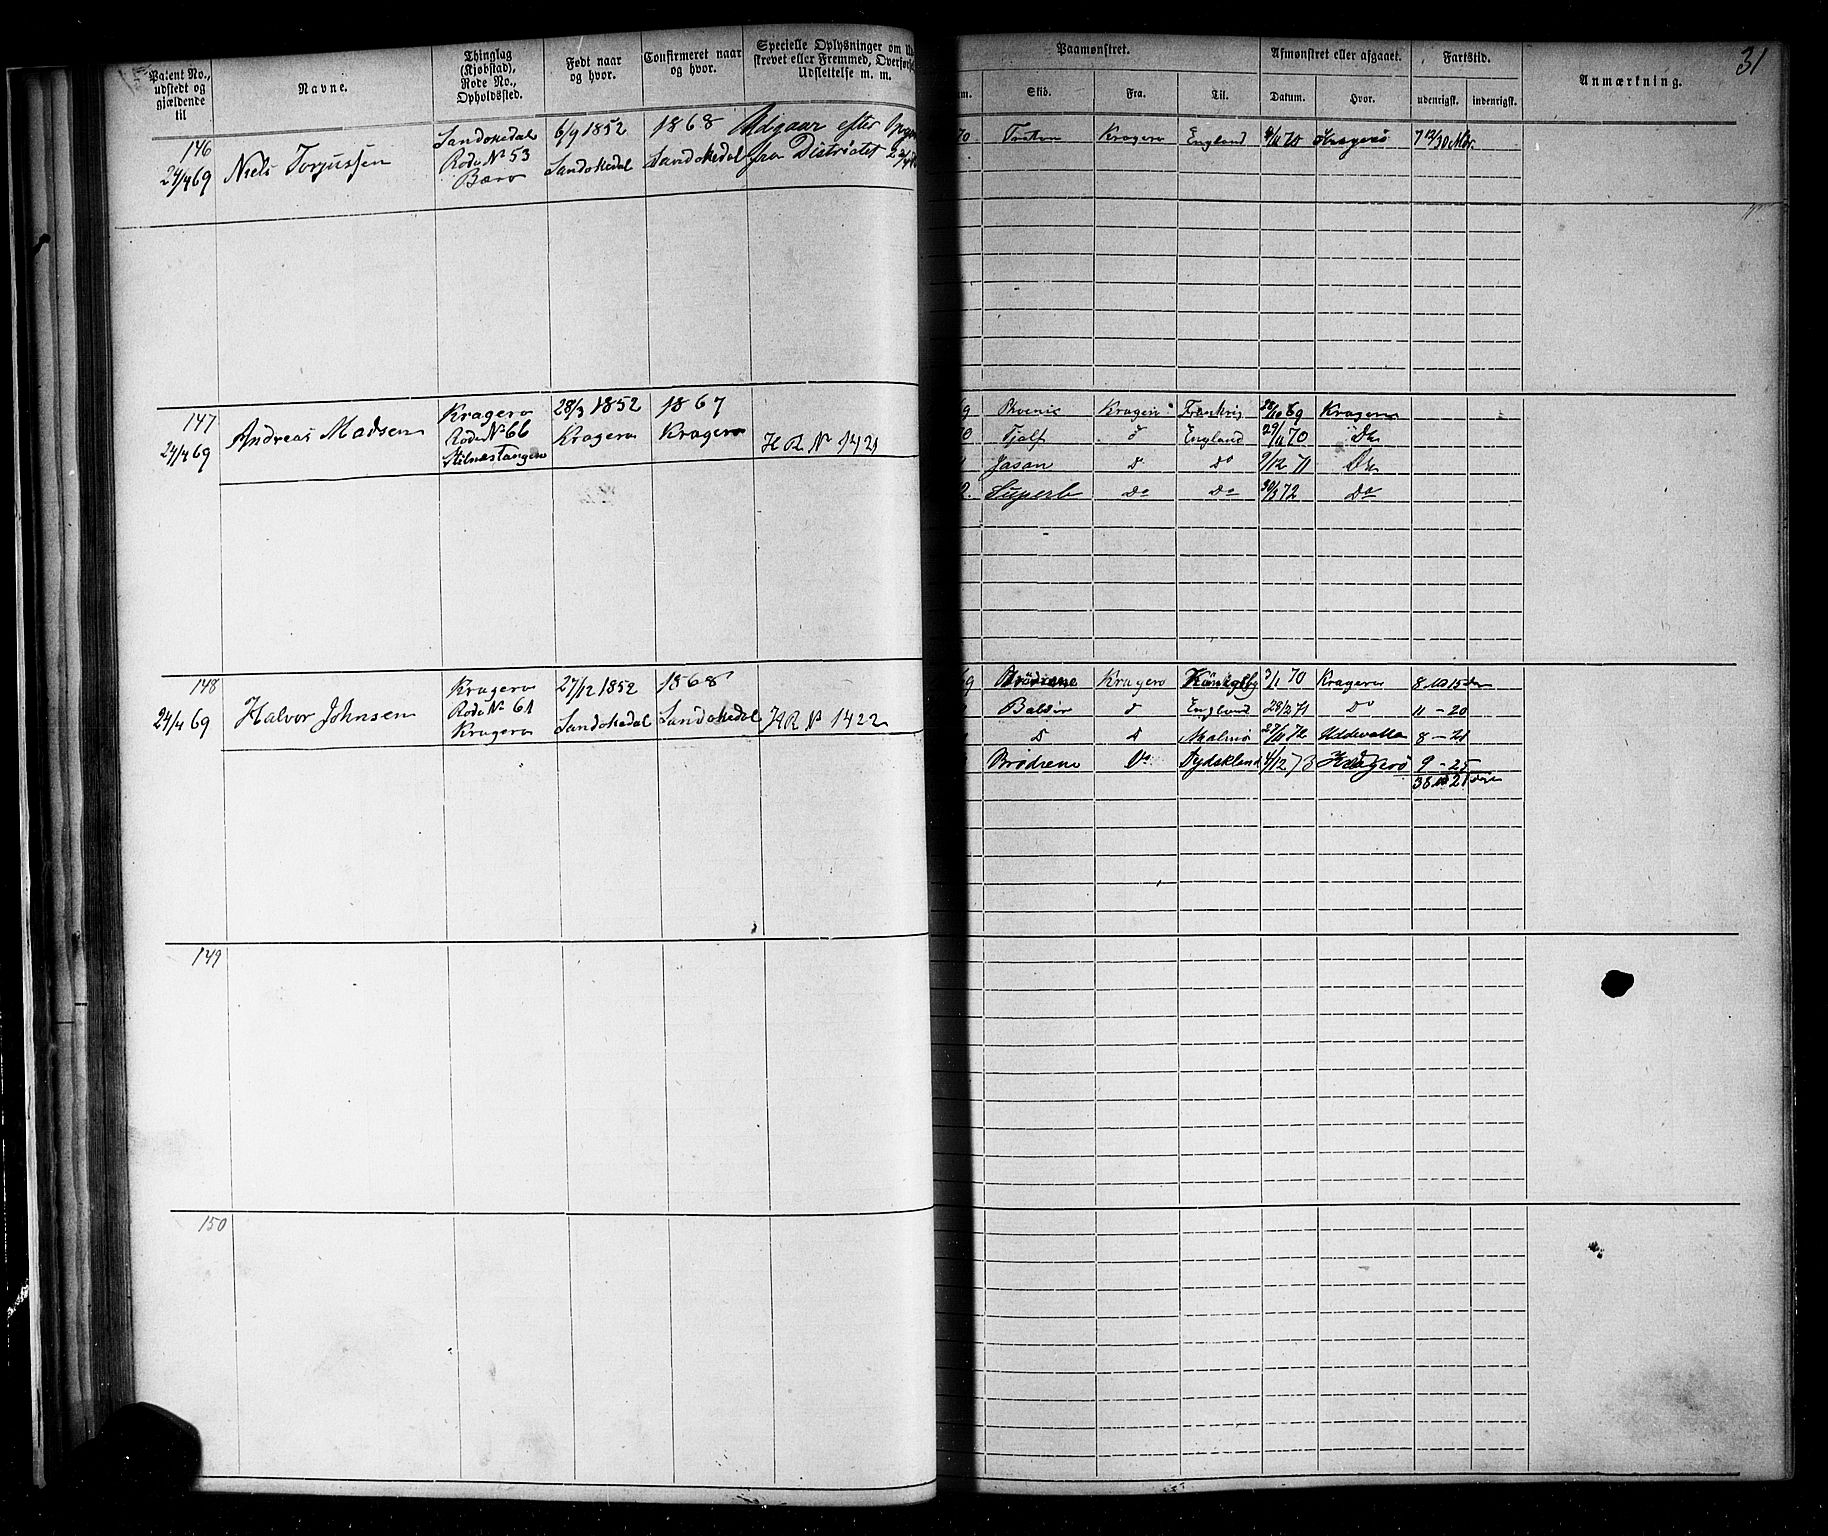 31
Patent No., udstedt og gjældende til
Navne.
Thinglag (Kjøbstad), Rode No., Opholdssted.
Født naar og hvor.
Confirmeret naar og hvor.
Specielle Oplysninger om
strevet eller Fremmed, Overførsel
Udslettelse m. m.
Paamønstret.
Afmønstret eller afgaaet.
Fartstid.
Anmærkning.
Skib.
Fra.
Til.
Datum.
Hvor.
udenrigsk.
indenrigsk.
146
24/4 69
Niels Torjussen
Sandøkedal
Rode No 53
Bærø
6/9 1852
Sandøkedal
1868
Sandøkedal
Udgaar efter
fra Distriktet
70
Kragerø
England
Kragerø
7 13/30 Mdr.
147
24/4 69
Andreas Madsen
Kragerø
Rode No 66
Stilnestangen
28/3 1852
Kragerø
1867
Kragerø
H R No 1421
Phoenix
Kragerø
Frankrig
28/10 69
Kragerø
Tjalf
d
England
29/11 70
Do
Jason
d
Do
9/12 71
Do
Superb
Do
Do
30/3 72
Do
148
24/4 69
Halvor Johnsen
Kragerø
Rode No 61
Kragerø
27/12 1852
Sandøkedal
1868
Sandøkedal
H R No 1422
Brödrene
Kragerø
Königsbg
3/1 70
Kragerø
8 M 15 d
Balder
d
England
28/12 71
Do
11 - 20
D
d
Malmø
27/11 72
Uddevalla
8 - 21
Brødrene
Do
Tydskland
4/12 73
Kragerø
9 - 25
38 M 21 dage
149
150